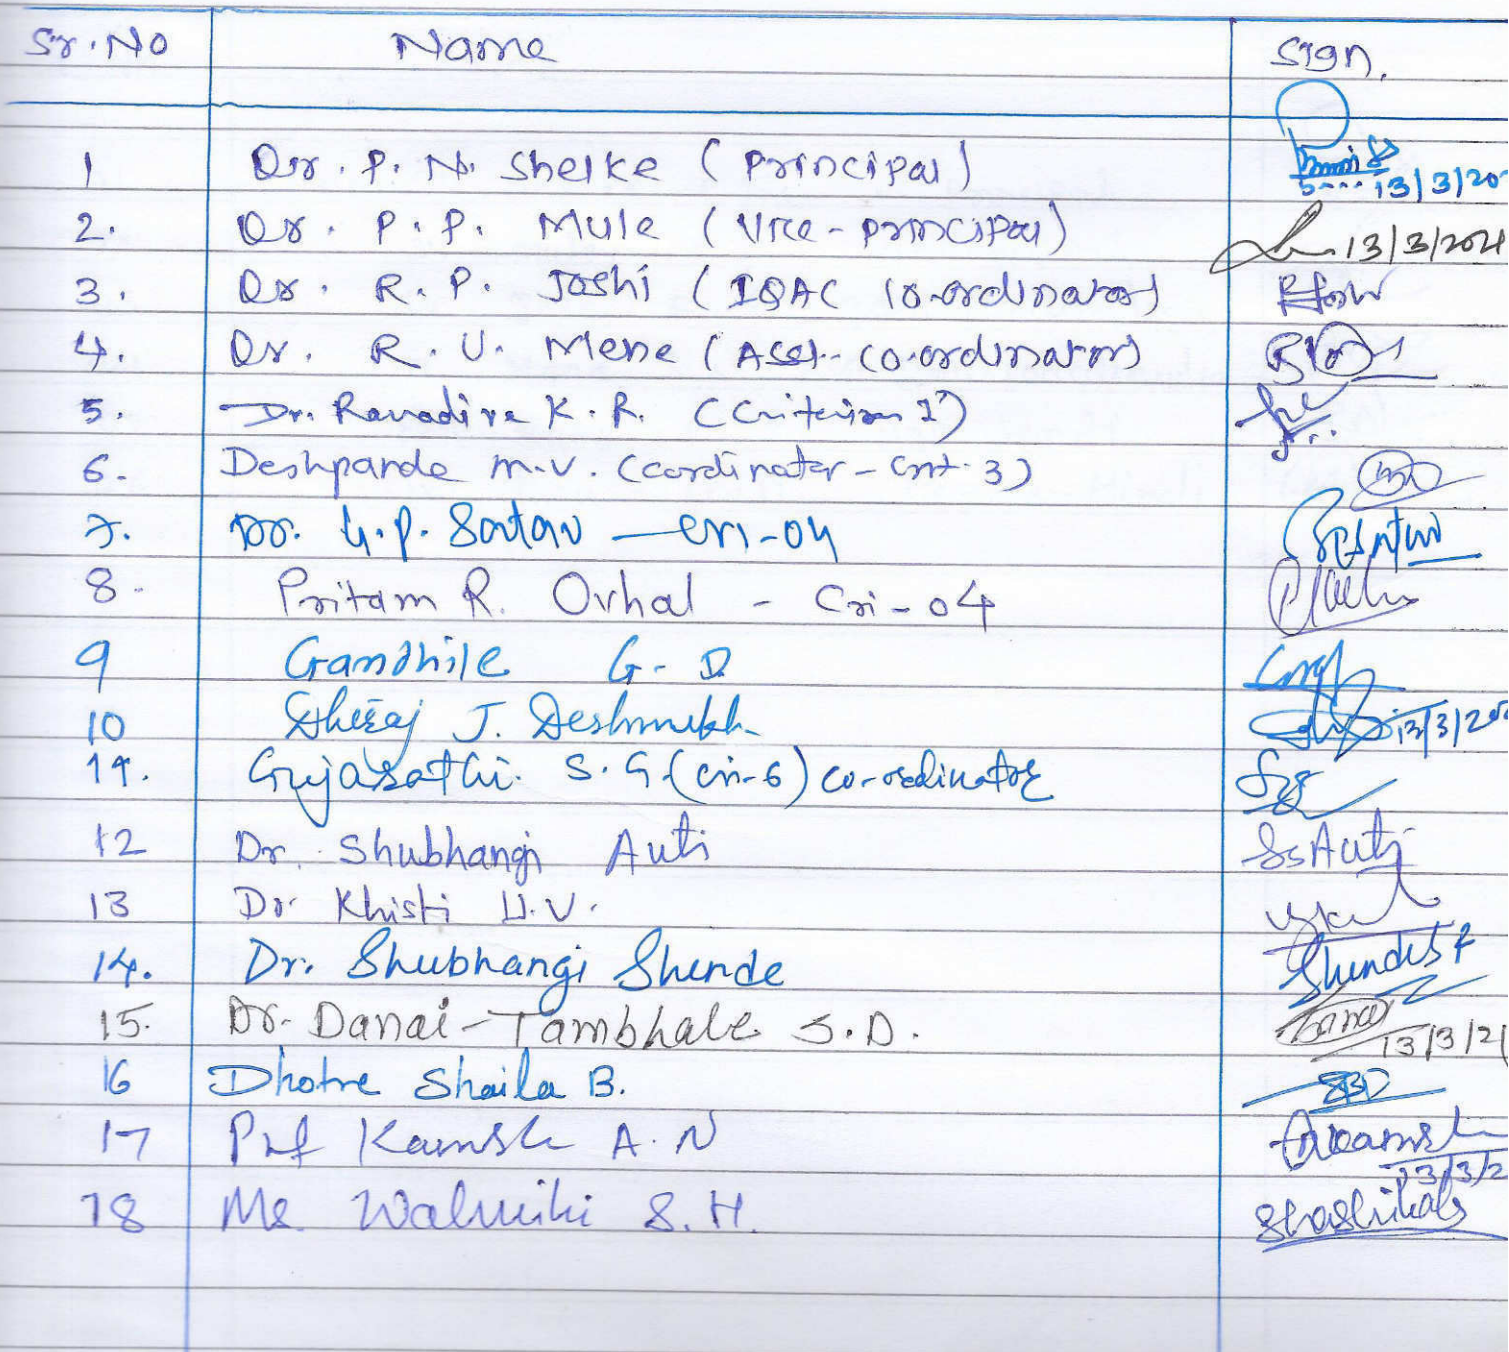 Sr. No Name Sign.
1 Dr. P. N. Shelke (Principal) 13/3/20
2. Dr. P. P. Mule (Vice-principal) 13/3/202
3. Dr. R. P. Joshi (IQAC Co-ordinator)
4. Dr. R. U. Mene (Asst. Co-ordinator)
5. Dr. Ranadive K. R. (Criterion 1)
6. Deshpande M.V. (Cordinator - Crit. 3)
7. Dr. G. P. Satav - Cri-04
8. Pritam R. Ovhal - Cri-04
9 Gandhile G. D
10 Dhiraj J. Deshmukh 13/3/20
11. Gujarathi S. G (Cri-6) co-ordinator
12 Dr. Shubhangi Auti SsAuti
13 Dr. Khisti U.V.
14. Dr. Shubhangi Shinde
15. Dr. Danai-Tambhale S.D. 13/3/2
16 Dhotre Shaila B. SBD
17 Prof Kamble A. N 13/3/2
18 Ms. Walmiki S. H. Shashikala